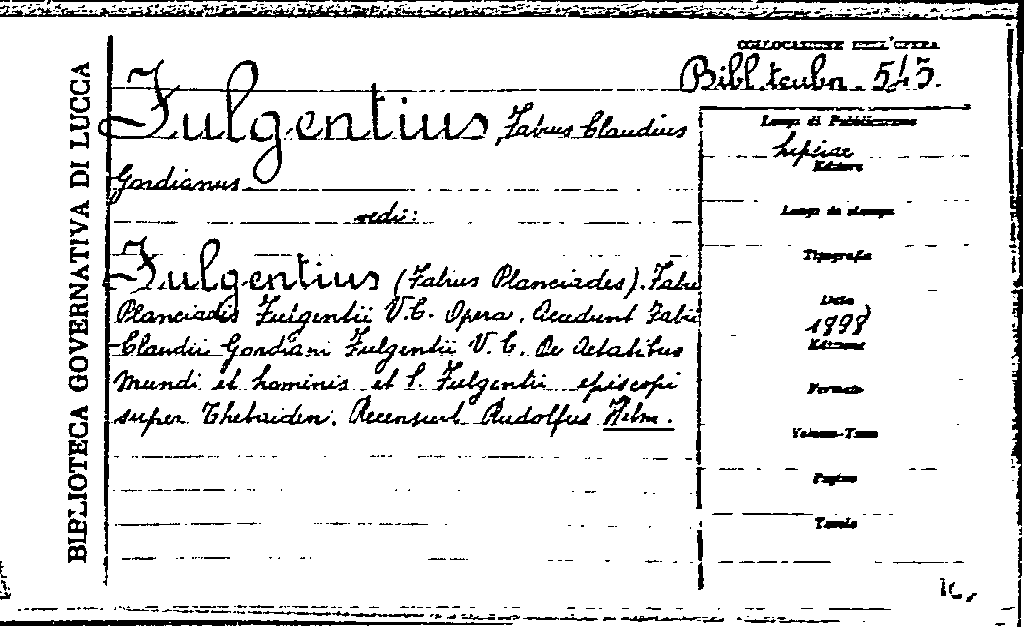 BIBLIOTECA GOVERNATIVA DI LUCCA
COLLOCAZIONE DELL'OPERA
Bibl. teubn. 543.
Fulgentius, Fabius Claudius
Gordianus.
vedi:
Fulgentius (Fabius Planciades). Fabii
Planciadis Fulgentii V. C. Opera. Accedunt Fabii
Claudii Gordiani Fulgentii V. C. De Aetatibus
mundi et hominis et S. Fulgentii episcopi
super Thebaiden. Recensuit Rudolfus Helm.
Luogo di Pubblicazione
Lipsiae
Editore
Luogo di stampa
Tipografia
Data
1898
Edizione
Formato
Volume-Tomo
Pagine
Tavole